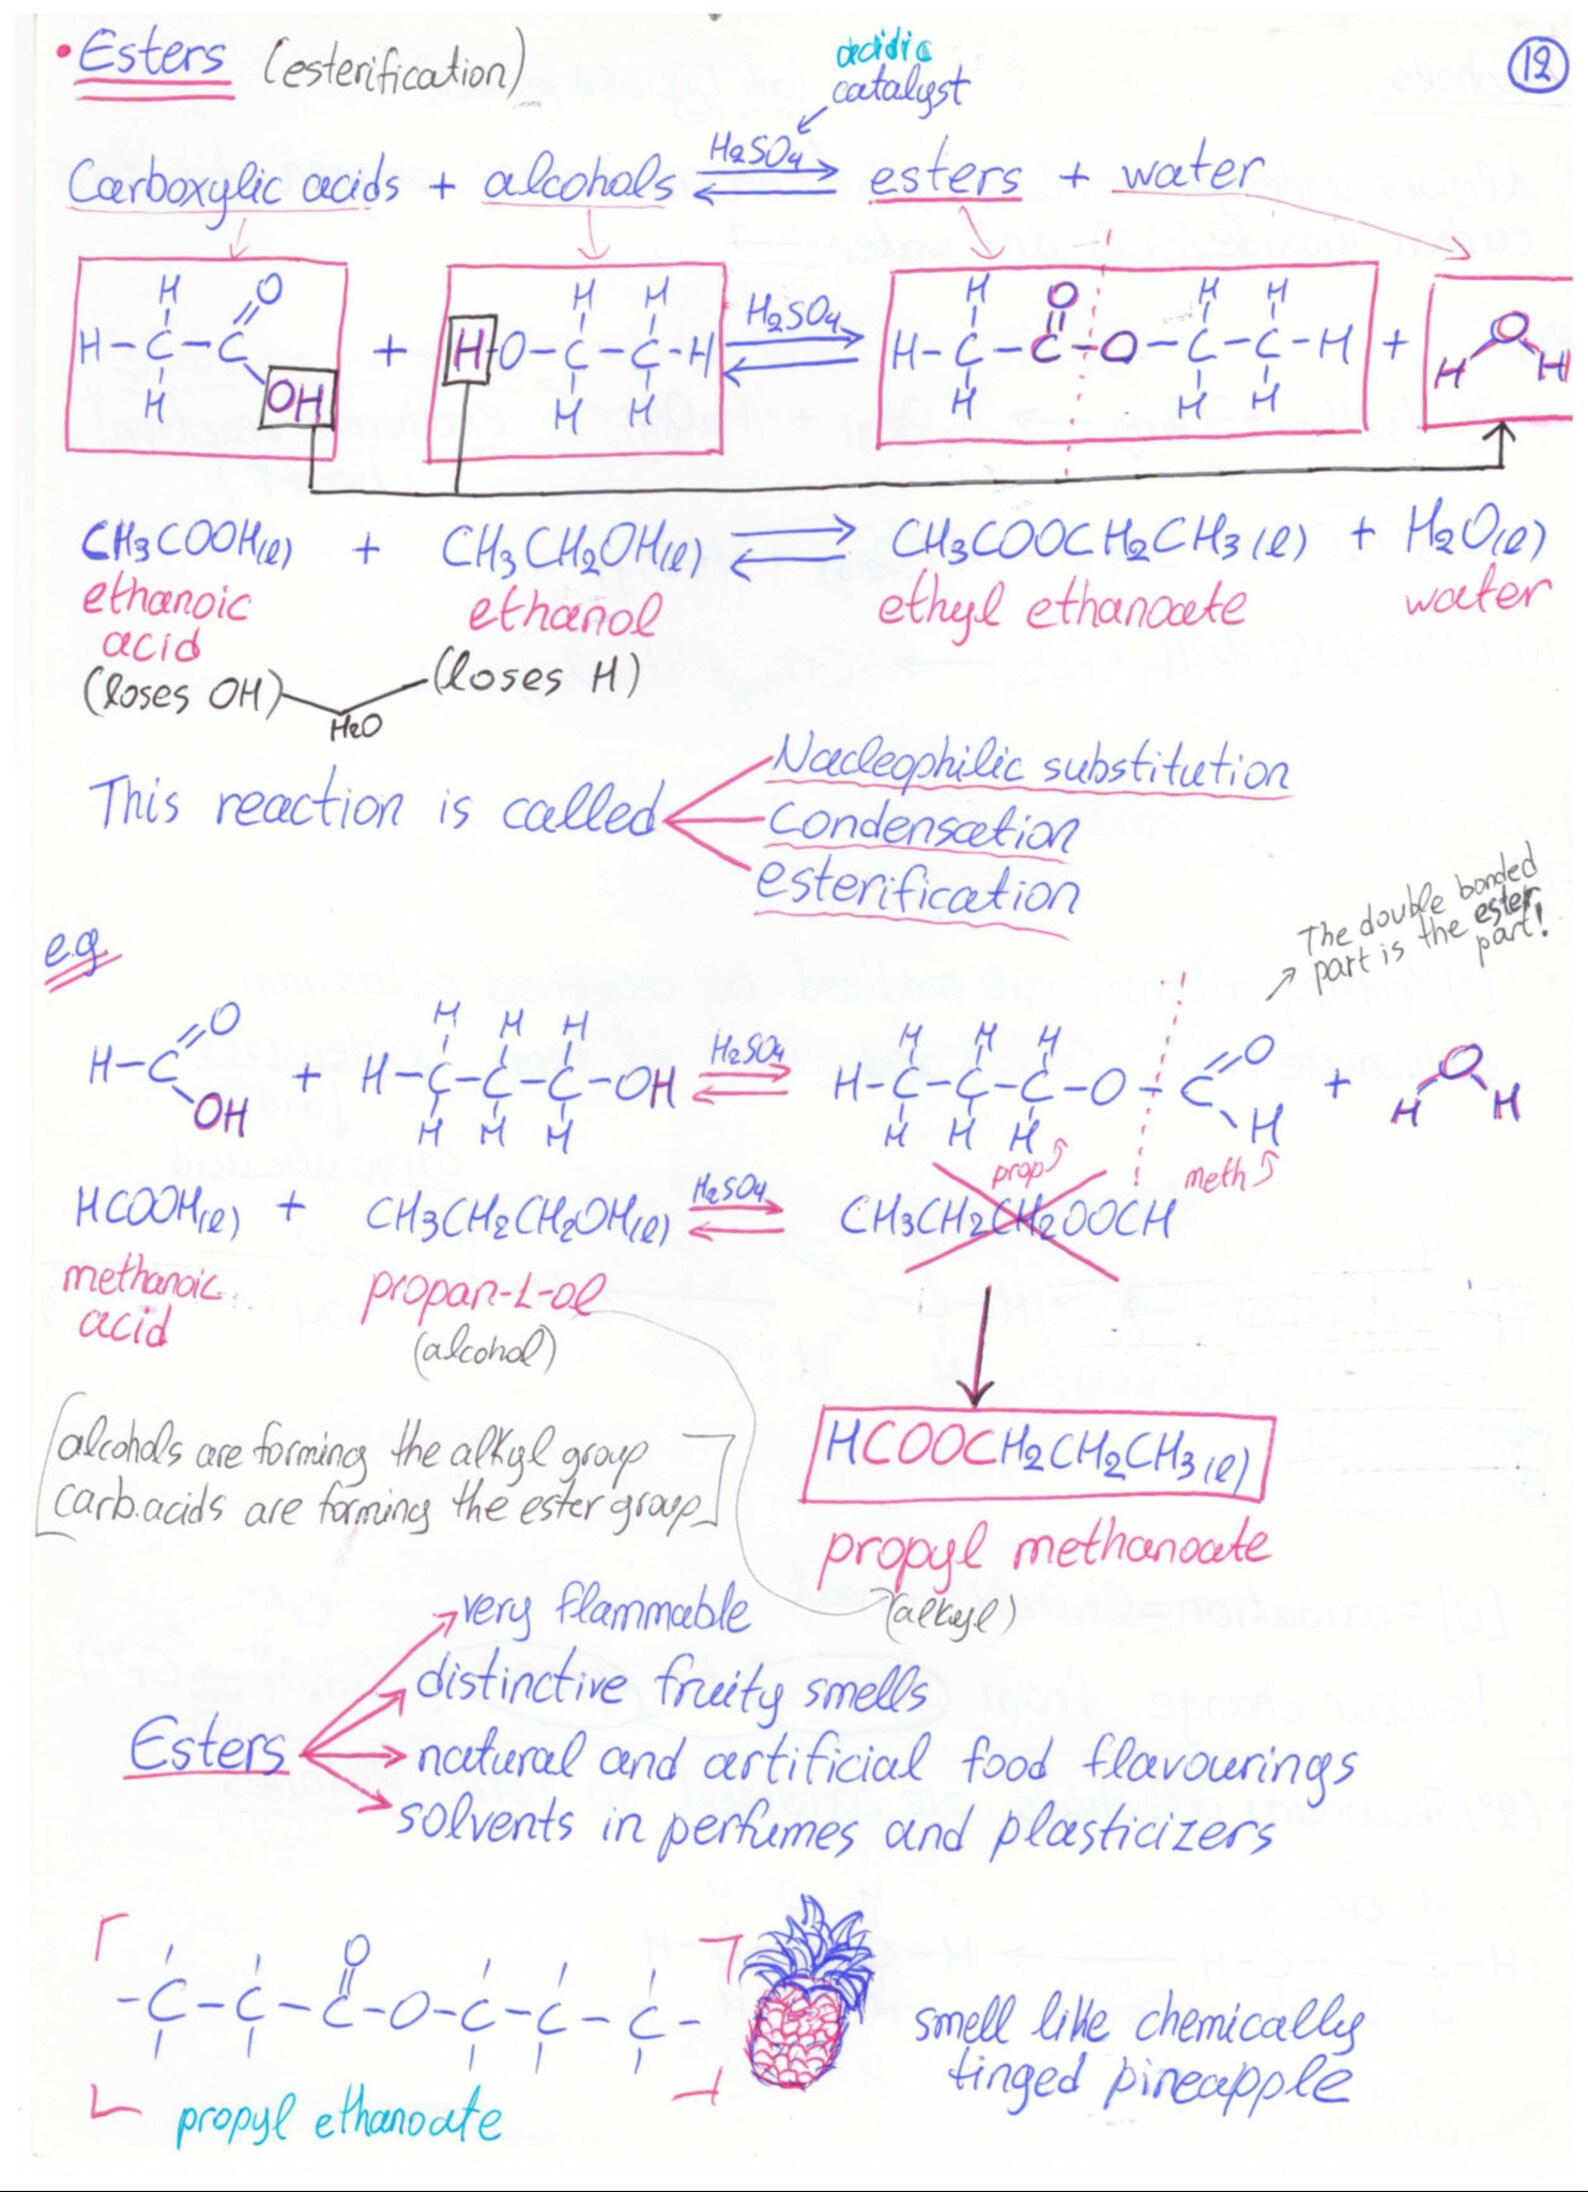 • Esters (esterification)
acidic
catalyst
12
Carboxylic acids + alcohols ⇌ H2SO4 esters + water
H H H H O H H
H–C–C O OH + H–O–C–C–H ⇌ H2SO4 H–C–C–O–C–C–H + H O H
H H H H H H
CH3COOH(l) + CH3CH2OH(l) ⇌ CH3COOCH2CH3(l) + H2O(l)
ethanoic acid ethanol ethyl ethanoate water
(loses OH) (loses H)
H2O
This reaction is called
Nucleophilic substitution
Condensation
esterification
e.g.
The double bonded
part is the ester
part!
H H H H H H
H–C O OH + H–C–C–C–OH ⇌ H2SO4 H–C–C–C–O–C O H + H O H
H H H H H H
prop meth
HCOOH(l) + CH3CH2CH2OH(l) ⇌ H2SO4 CH3CH2CH2OOCH
methanoic acid propan-1-ol
(alcohol)
alcohols are forming the alkyl group
carb.acids are forming the ester group
HCOOCH2CH2CH3(l)
propyl methanoate
(alkyl)
Esters
very flammable
distinctive fruity smells
natural and artificial food flavourings
solvents in perfumes and plasticizers
O
–C–C–C–O–C–C–C–
propyl ethanoate
smell like chemically
tinged pineapple